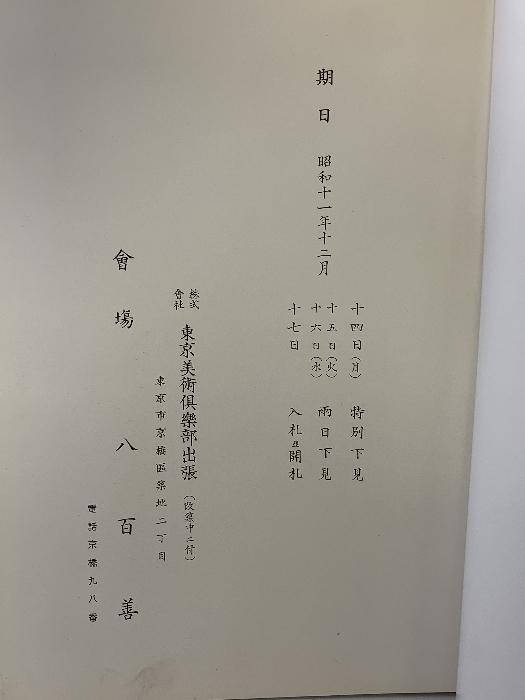 期日 昭和十一年十二月
十四日(月) 特別下見
十五日(火)
十六日(水) 両日下見
十七日 入札並開札
株式會社 東京美術倶樂部出張(改築中ニ付)
東京市京橋區築地二丁目
會場 八百善
電話京橋九八番